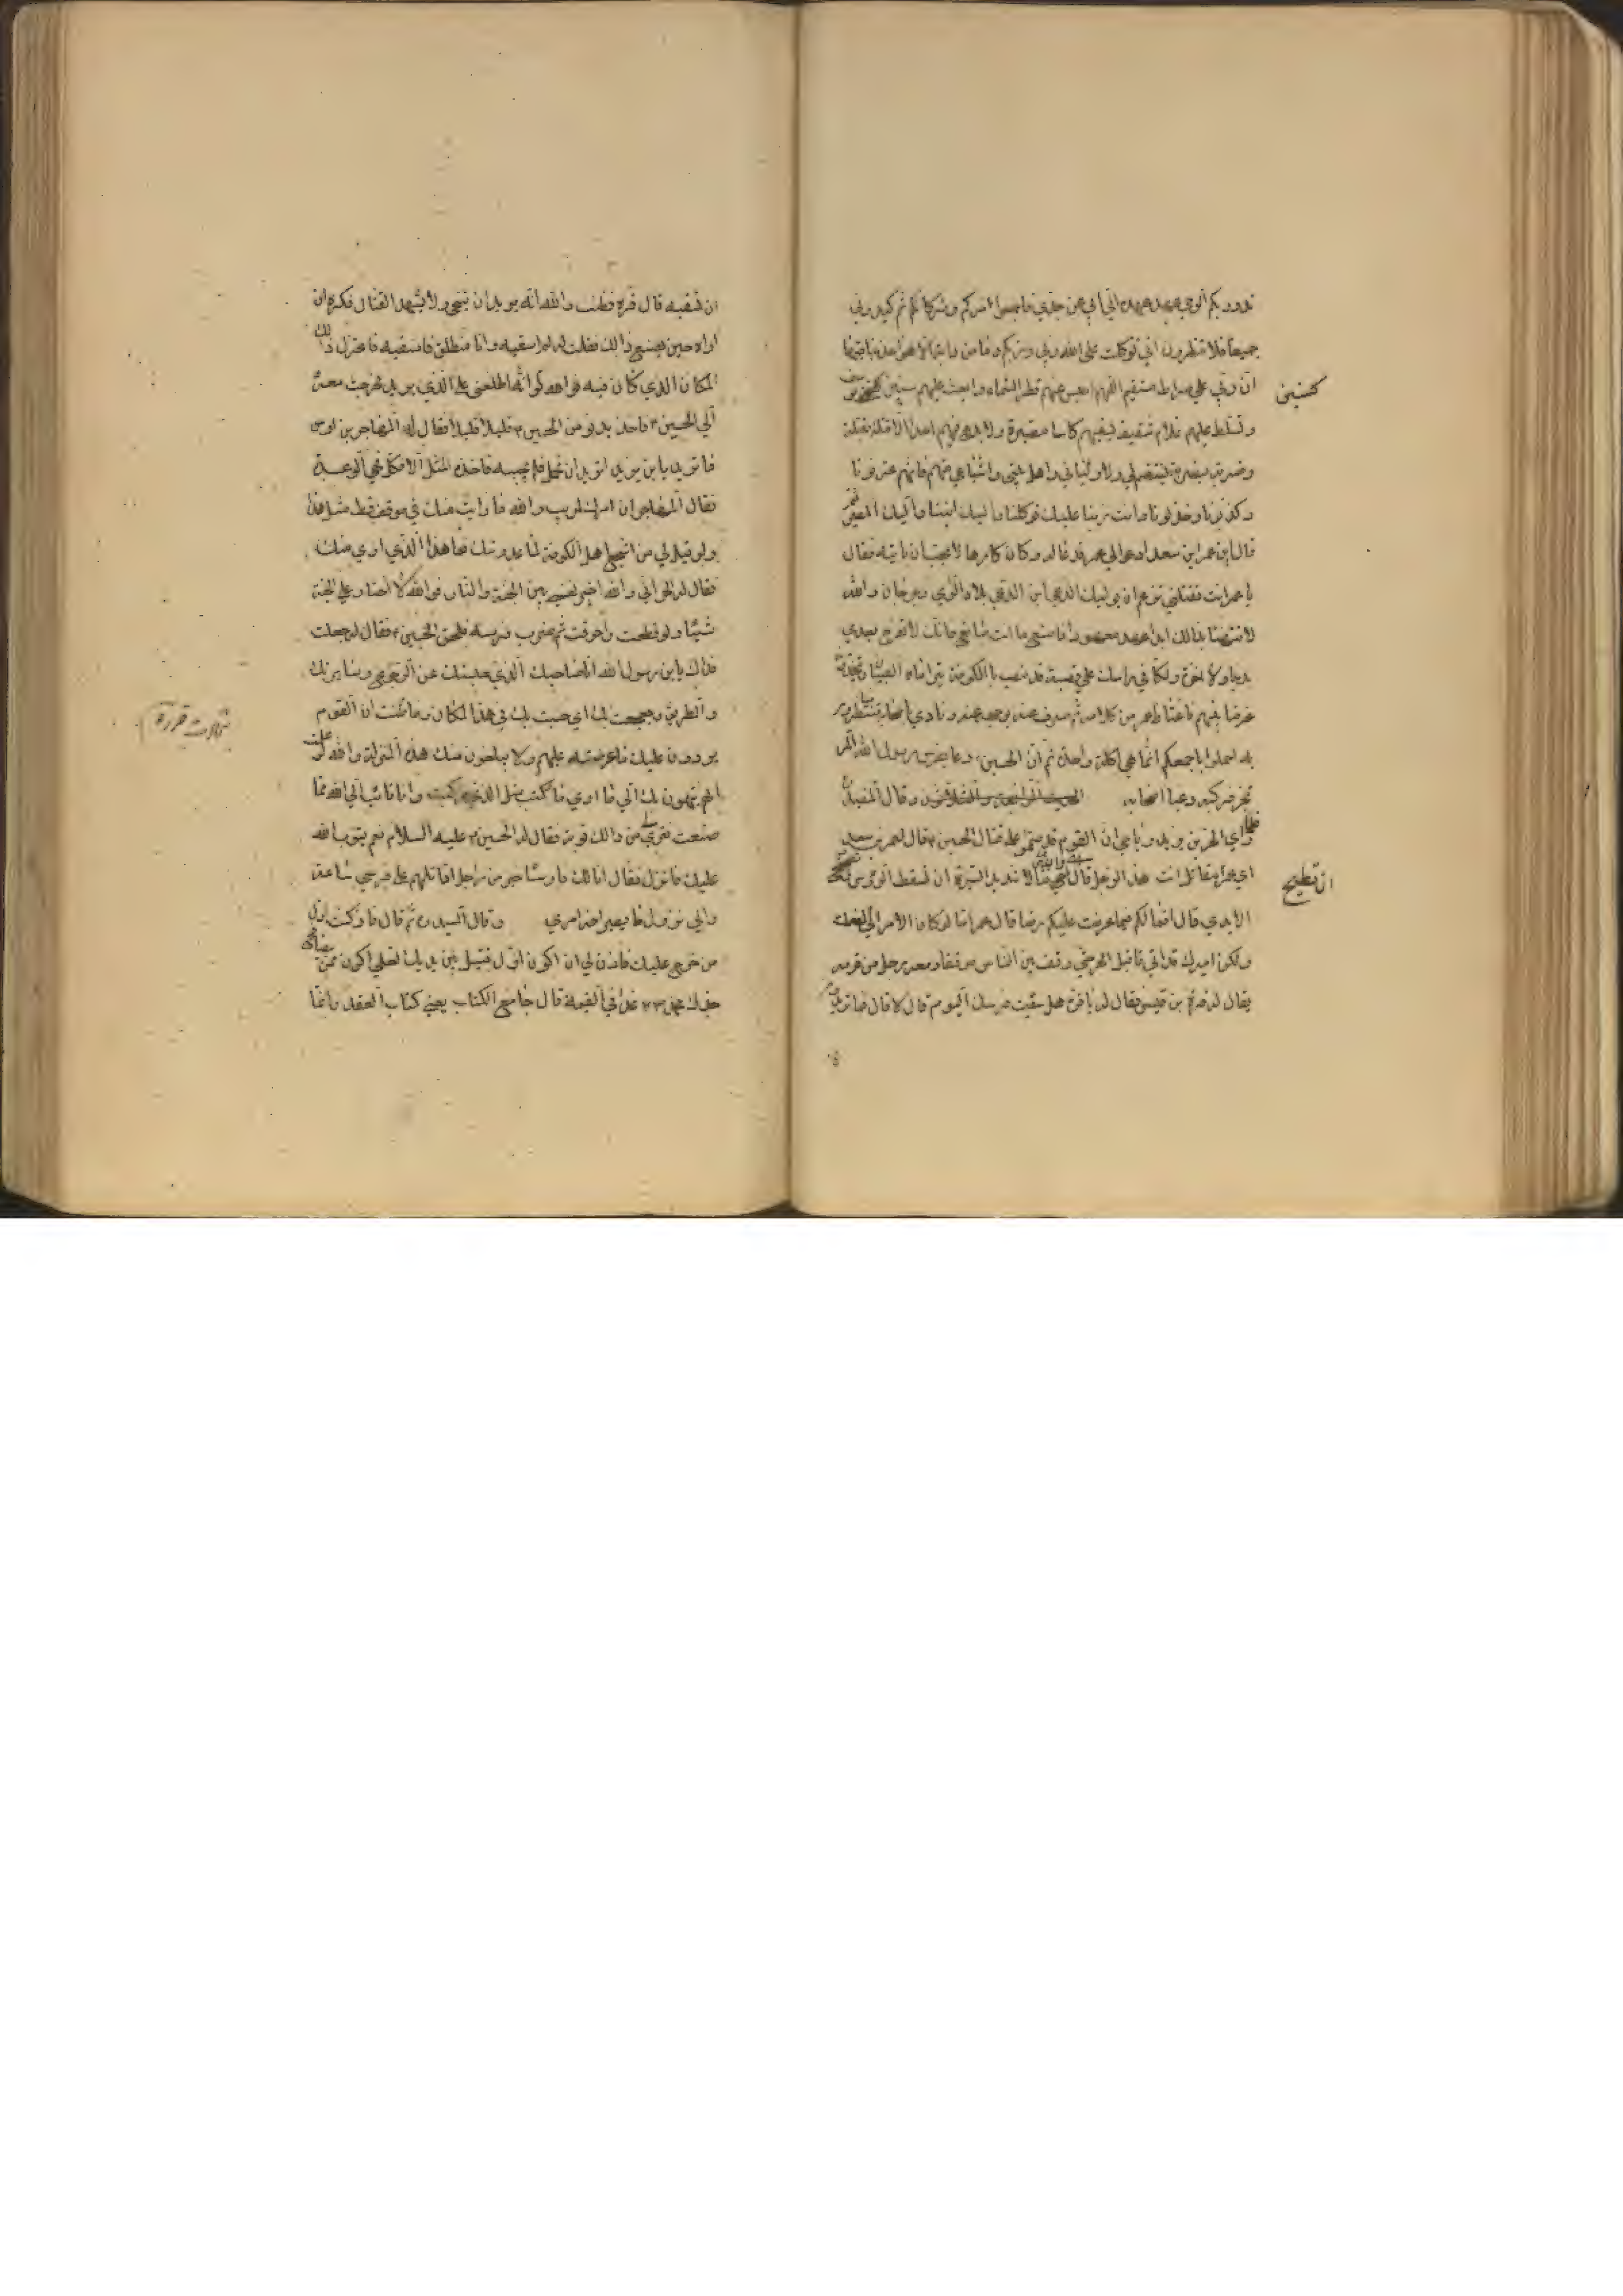 تدور بكم الرحى عهد عهده الي ابي عن جدي فاجمعوا امركم وشركائكم ثم كيدوني
جميعا فلا تنظرون اني توكلت على الله ربي وربكم وما من دابة الا هو اخذ بناصيتها
ان ربي علي صراط مستقيم اللهم احبس عنهم قطر السماء وابعث عليهم سنين
كسني
وتسلط عليهم غلام ثقيف ليقيهم كاسا مصبرة ولا يدع فيهم احدا الا قتلة بقتلة
وضربة بضربة لينتقم لي ولاوليائي واهل بيتي واشياعي منهم فانهم غرونا
وكذبونا وخذلونا وانت ربنا عليك توكلنا واليك انبنا واليك المصير
قال اين عمر ابن سعد ادعو الي عمر فدعا له وكان كارها لا يحب ان ياتيه فقال
يا عمر انت تقتلني تزعم ان يوليك الدعي ابن الدعي بلاد الري وجرجان والله
لا تتهنا بذالك ابدا عهد معهود فاصنع ما انت صانع فانك لا تفرح بعدي
بدنيا ولا اخرة ولكاني براسك علي قصبة قد نصب بالكوفة يتراماه الصبيان ويتخذونه
غرضا بينهم فاغتاظ عمر من كلامه ثم صرف عنه بوجهه عنه ونادي اصحابه ما تنتظرون
به احملوا باجمعكم انما هي اكلة واحدة ثم ان الحسين دعا بفرس رسول الله المر
تجز فركبه وعبا اصحابه وقال المفيد
فلما راي الحر بن يزيد الرياحي ان القوم قد صمموا علي قتال الحسين ع قال لعمر بن سعد
اي عمر امقاتل انت هذا الرجل قال اي والله قتالا شديدا ايسره ان تسقط الرؤس
ان تطيح
الايدي قال افما لكم فيما عرضه عليكم رضا قال عمر اما لو كان الامر الي لفعلت
ولكن اميرك قد ابي فاقبل الحر حتي وقف بين الناس موقفا ومعه رجل من قومه
يقال له قرة بن قيس فقال له يا قرة هل سقيت فرسك اليوم قال لا قال فما تريد
ان تسقيه قال قرة فظننت والله انه يريد ان يتنحي ولا يشهد القتال فكره ان
اراه حين يصنع ذالك فقلت له لم اسقيه وانا منطلق فاسقيه فاعتزل ذلك
المكان الذي كان فيه فوالله لو انه اطلعني علي الذي يريد لخرجت معه
الي الحسين ع فاخذ يدنو من الحسين ع قليلا قليلا فقال له المهاجر بن اوس
ما تريد يا ابن يزيد اتريد ان تحمل فلم يجبه فاخذه المثل الافكل وهي الرعدة
فقال المهاجر ان امرك لمريب والله ما رايت منك في موقف قط مثل هذا
ولو قيل لي من اشجع اهل الكوفة لما عدوتك فما هذا الذي اري منك
فقال له الحر اني والله اخير نفسي بين الجنة والنار فوالله لا اختار علي الجنة
شيئا ولو قطعت واحرقت ثم ضرب فرسه فلحق الحسين ع فقال له جعلت
فداك يا ابن رسول الله انا صاحبك الذي حبستك عن الرجوع وسايرتك
والطريق وجعجعت بك اي حبست بك في هذا المكان وما ظننت ان القوم
يردون عليك ما عرضته عليهم ولا يبلغون منك هذه المنزلة والله لو علمت
انهم ينتهون بك الي ما اري ما ركبت مثل الذي ركبت وانا تائب الي الله مما
صنعت فتري لي من ذالك توبة فقال له الحسين ع عليه السلام نعم يتوب الله
عليك فانزل فقال انا لك فارسا خير من راجل اقاتلهم علي فرسي ساعة
والي نزول ما يصير اخر امري وقال السيد ره ثم قال فاذ كنت اول
من خرج عليك فاذن لي ان اكون اول قتيل بين يديك لعلي اكون ممن يصافح
جدك محمد غدا في القيمة قال جامع الكتاب يعني كتاب العقد وانما